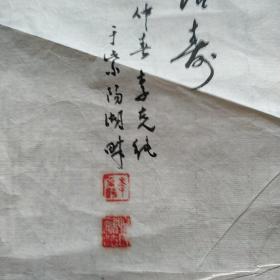 寿
仲春李克纯
于紫阳湖畔